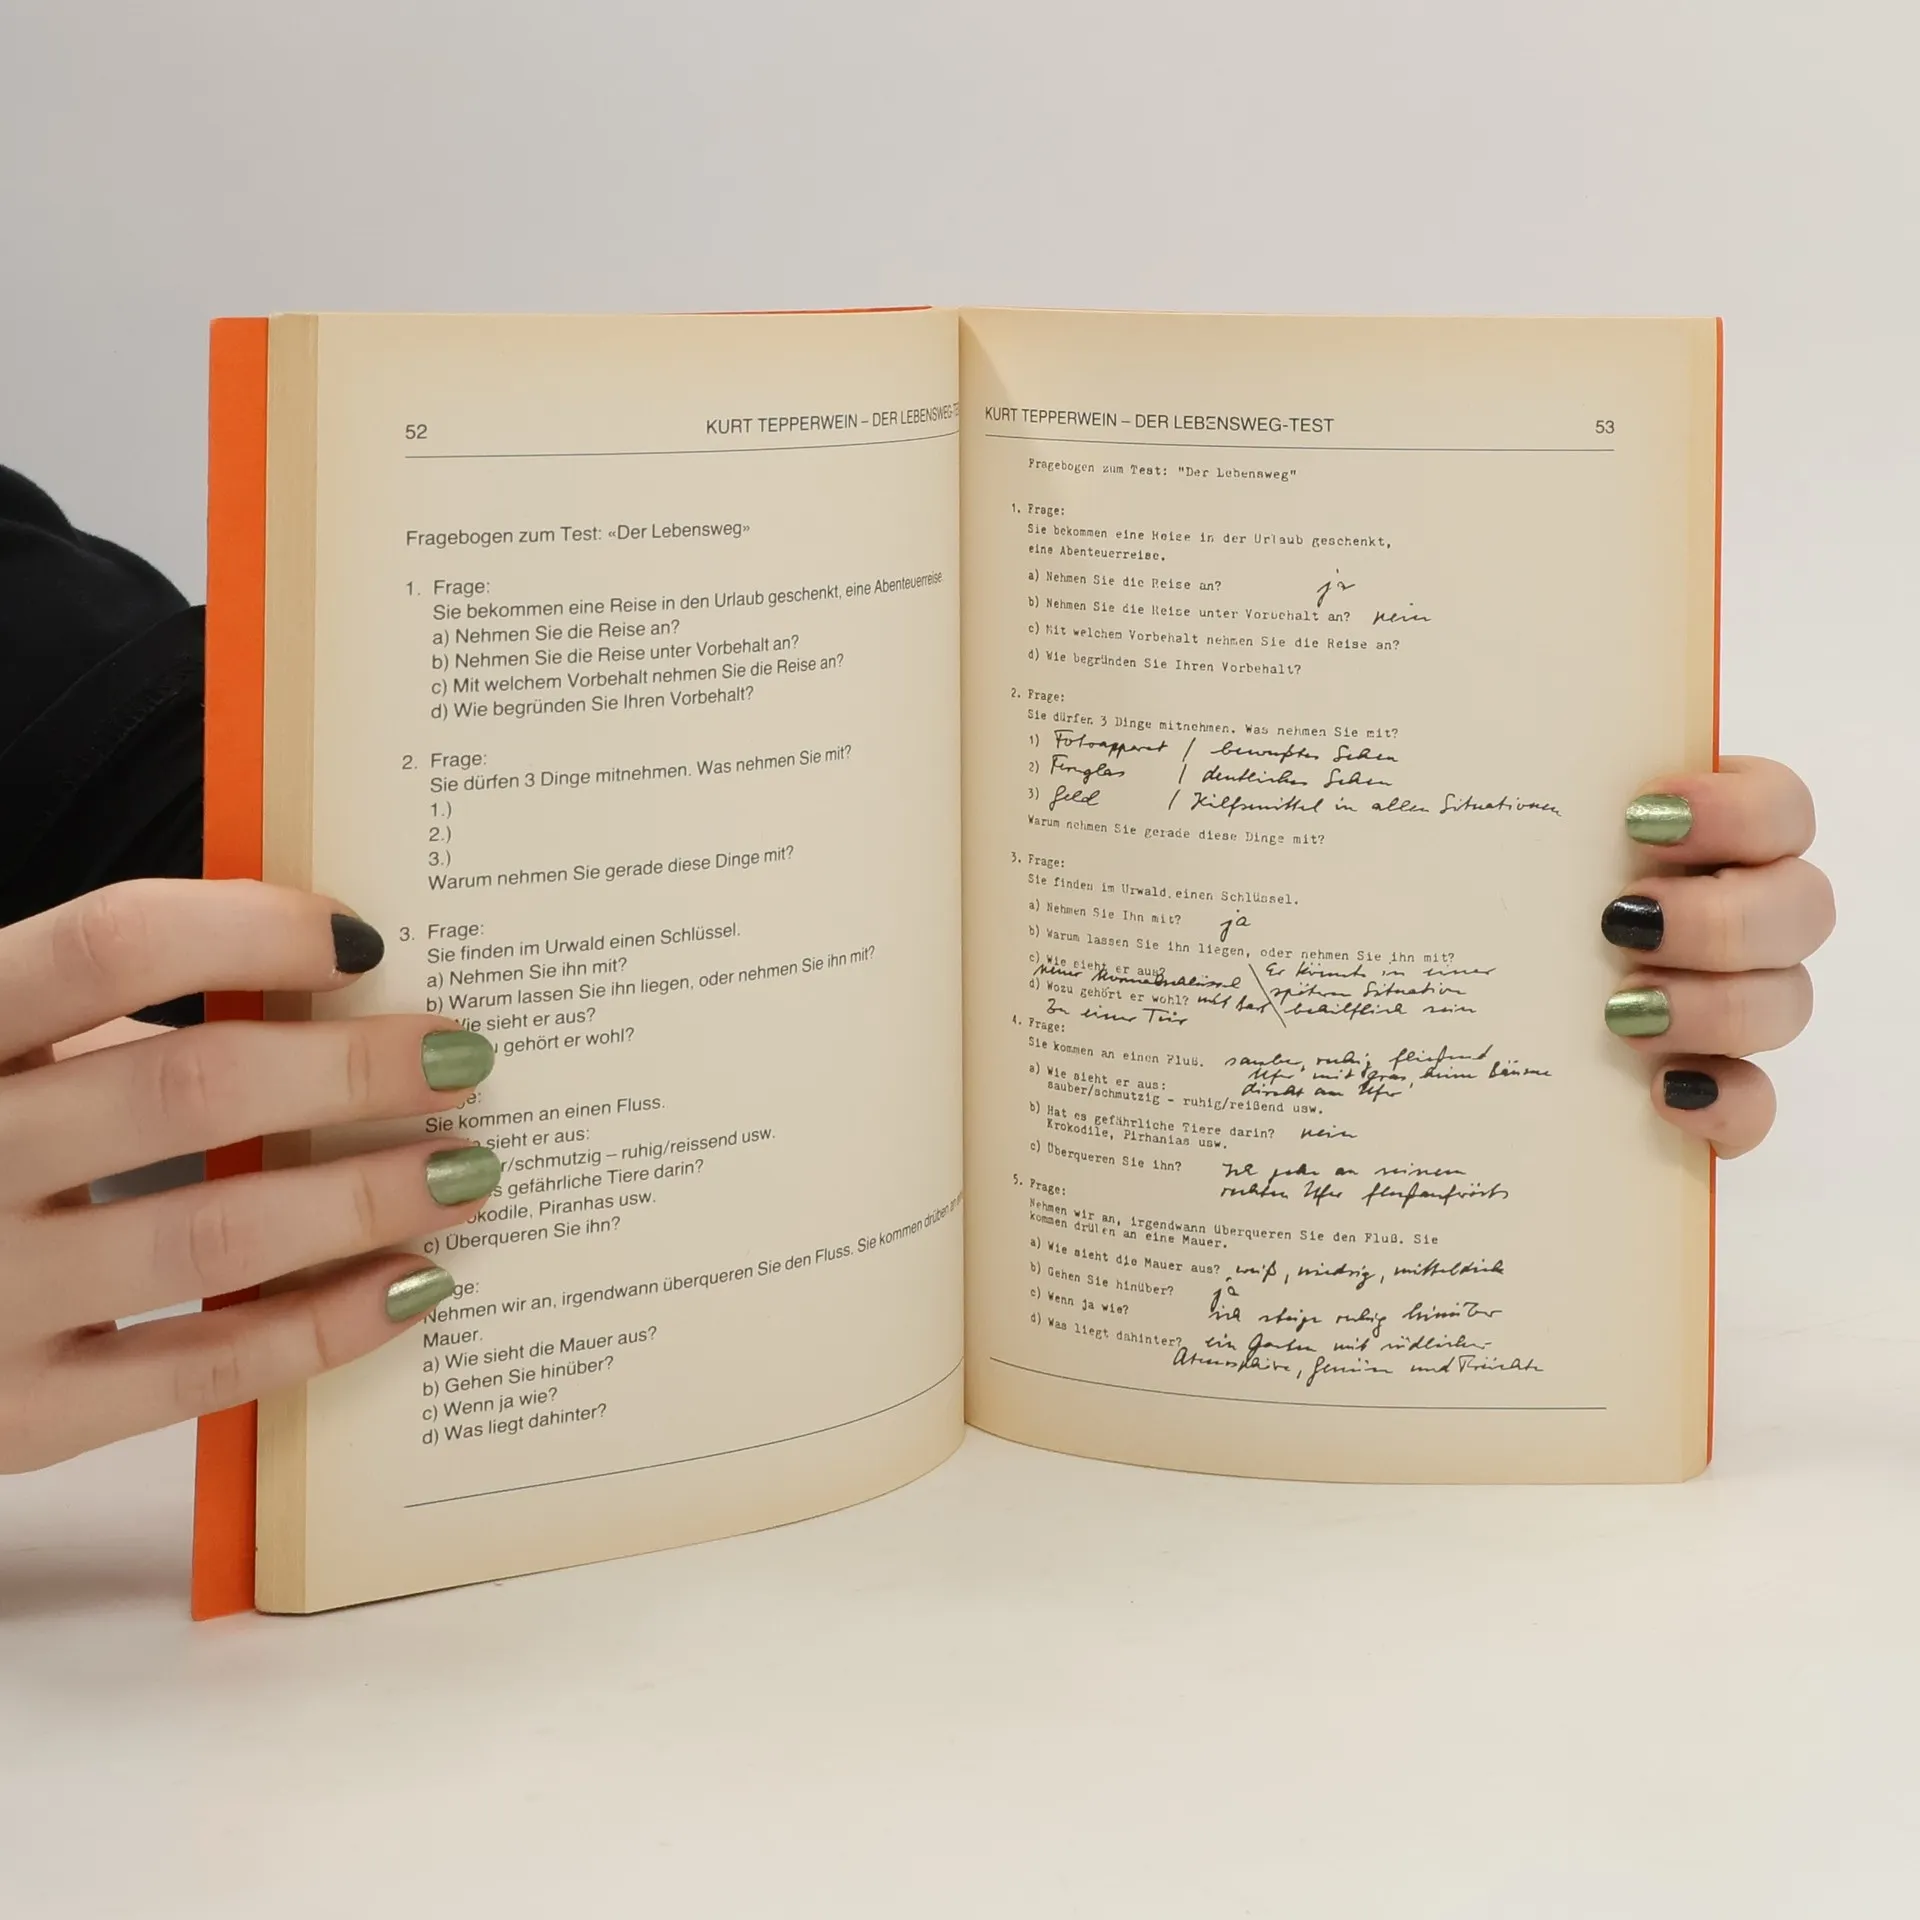 52
KURT TEPPERWEIN – DER LEBENSWEG-TE
Fragebogen zum Test: «Der Lebensweg»
1. Frage:
Sie bekommen eine Reise in den Urlaub geschenkt, eine Abenteuerreise
a) Nehmen Sie die Reise an?
b) Nehmen Sie die Reise unter Vorbehalt an?
c) Mit welchem Vorbehalt nehmen Sie die Reise an?
d) Wie begründen Sie Ihren Vorbehalt?
2. Frage:
Sie dürfen 3 Dinge mitnehmen. Was nehmen Sie mit?
1.)
2.)
3.)
Warum nehmen Sie gerade diese Dinge mit?
3. Frage:
Sie finden im Urwald einen Schlüssel.
a) Nehmen Sie ihn mit?
b) Warum lassen Sie ihn liegen, oder nehmen Sie ihn mit?
Wie sieht er aus?
gehört er wohl?
ge:
Sie kommen an einen Fluss.
sieht er aus:
r/schmutzig – ruhig/reissend usw.
s gefährliche Tiere darin?
okodile, Piranhas usw.
c) Überqueren Sie ihn?
ge:
Nehmen wir an, irgendwann überqueren Sie den Fluss. Sie kommen drüben an
Mauer.
a) Wie sieht die Mauer aus?
b) Gehen Sie hinüber?
c) Wenn ja wie?
d) Was liegt dahinter?
KURT TEPPERWEIN – DER LEBENSWEG-TEST
53
Fragebogen zum Test: "Der Lebensweg"
1. Frage:
Sie bekommen eine Reise in der Urlaub geschenkt,
eine Abenteuerreise.
a) Nehmen Sie die Reise an? ja
b) Nehmen Sie die Reise unter Vorbehalt an? nein
c) Mit welchem Vorbehalt nehmen Sie die Reise an?
d) Wie begründen Sie Ihren Vorbehalt?
2. Frage:
Sie dürfen 3 Dinge mitnehmen. Was nehmen Sie mit?
1) Fotoapparat / bewußtes Sehen
2) Fernglas / deutliches Sehen
3) Geld / Hilfsmittel in allen Situationen
Warum nehmen Sie gerade diese Dinge mit?
3. Frage:
Sie finden im Urwald einen Schlüssel.
a) Nehmen Sie Ihn mit? ja
b) Warum lassen Sie ihn liegen, oder nehmen Sie ihn mit?
c) Wie sieht er aus? Er könnte in einer
späteren Situation
d) Wozu gehört er wohl? mit Bart behilflich sein
Zu einer Tür
4. Frage:
Sie kommen an einen Fluß. sauber, ruhig fließend
Ufer mit Gras, keine Bäume
a) Wie sieht er aus: direkt am Ufer
sauber/schmutzig - ruhig/reißend usw.
b) Hat es gefährliche Tiere darin? nein
Krokodile, Pirhanias usw.
c) Überqueren Sie ihn? Ich gehe an seinem
rechten Ufer flußaufwärts
5. Frage:
Nehmen wir an, irgendwann überqueren Sie den Fluß. Sie
kommen drüben an eine Mauer.
a) Wie sieht die Mauer aus? weiß, niedrig, mitteldick
b) Gehen Sie hinüber? ja
c) Wenn ja wie? ich steige ruhig hinüber
d) Was liegt dahinter? ein Garten mit südlicher
Atmosphäre, Gemüse und Früchte